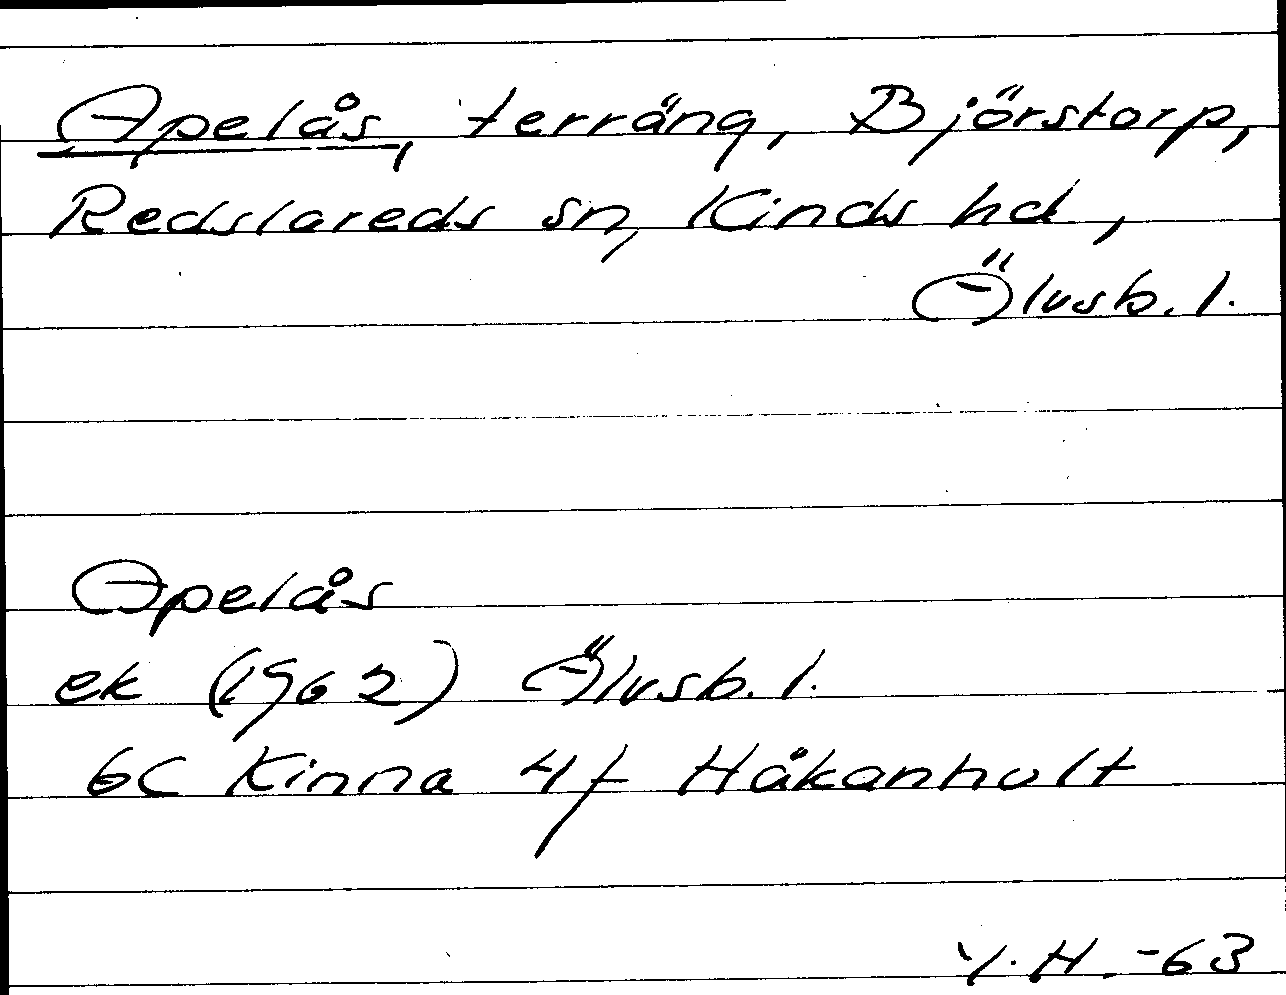 Apelås, terräng, Björstorp,
Redslareds sn, Kinds hd,
Älvsb. l.
Apelås
ek (1962) Älvsb. l.
6C Kinna 4f Håkanhult
Y. H. -63